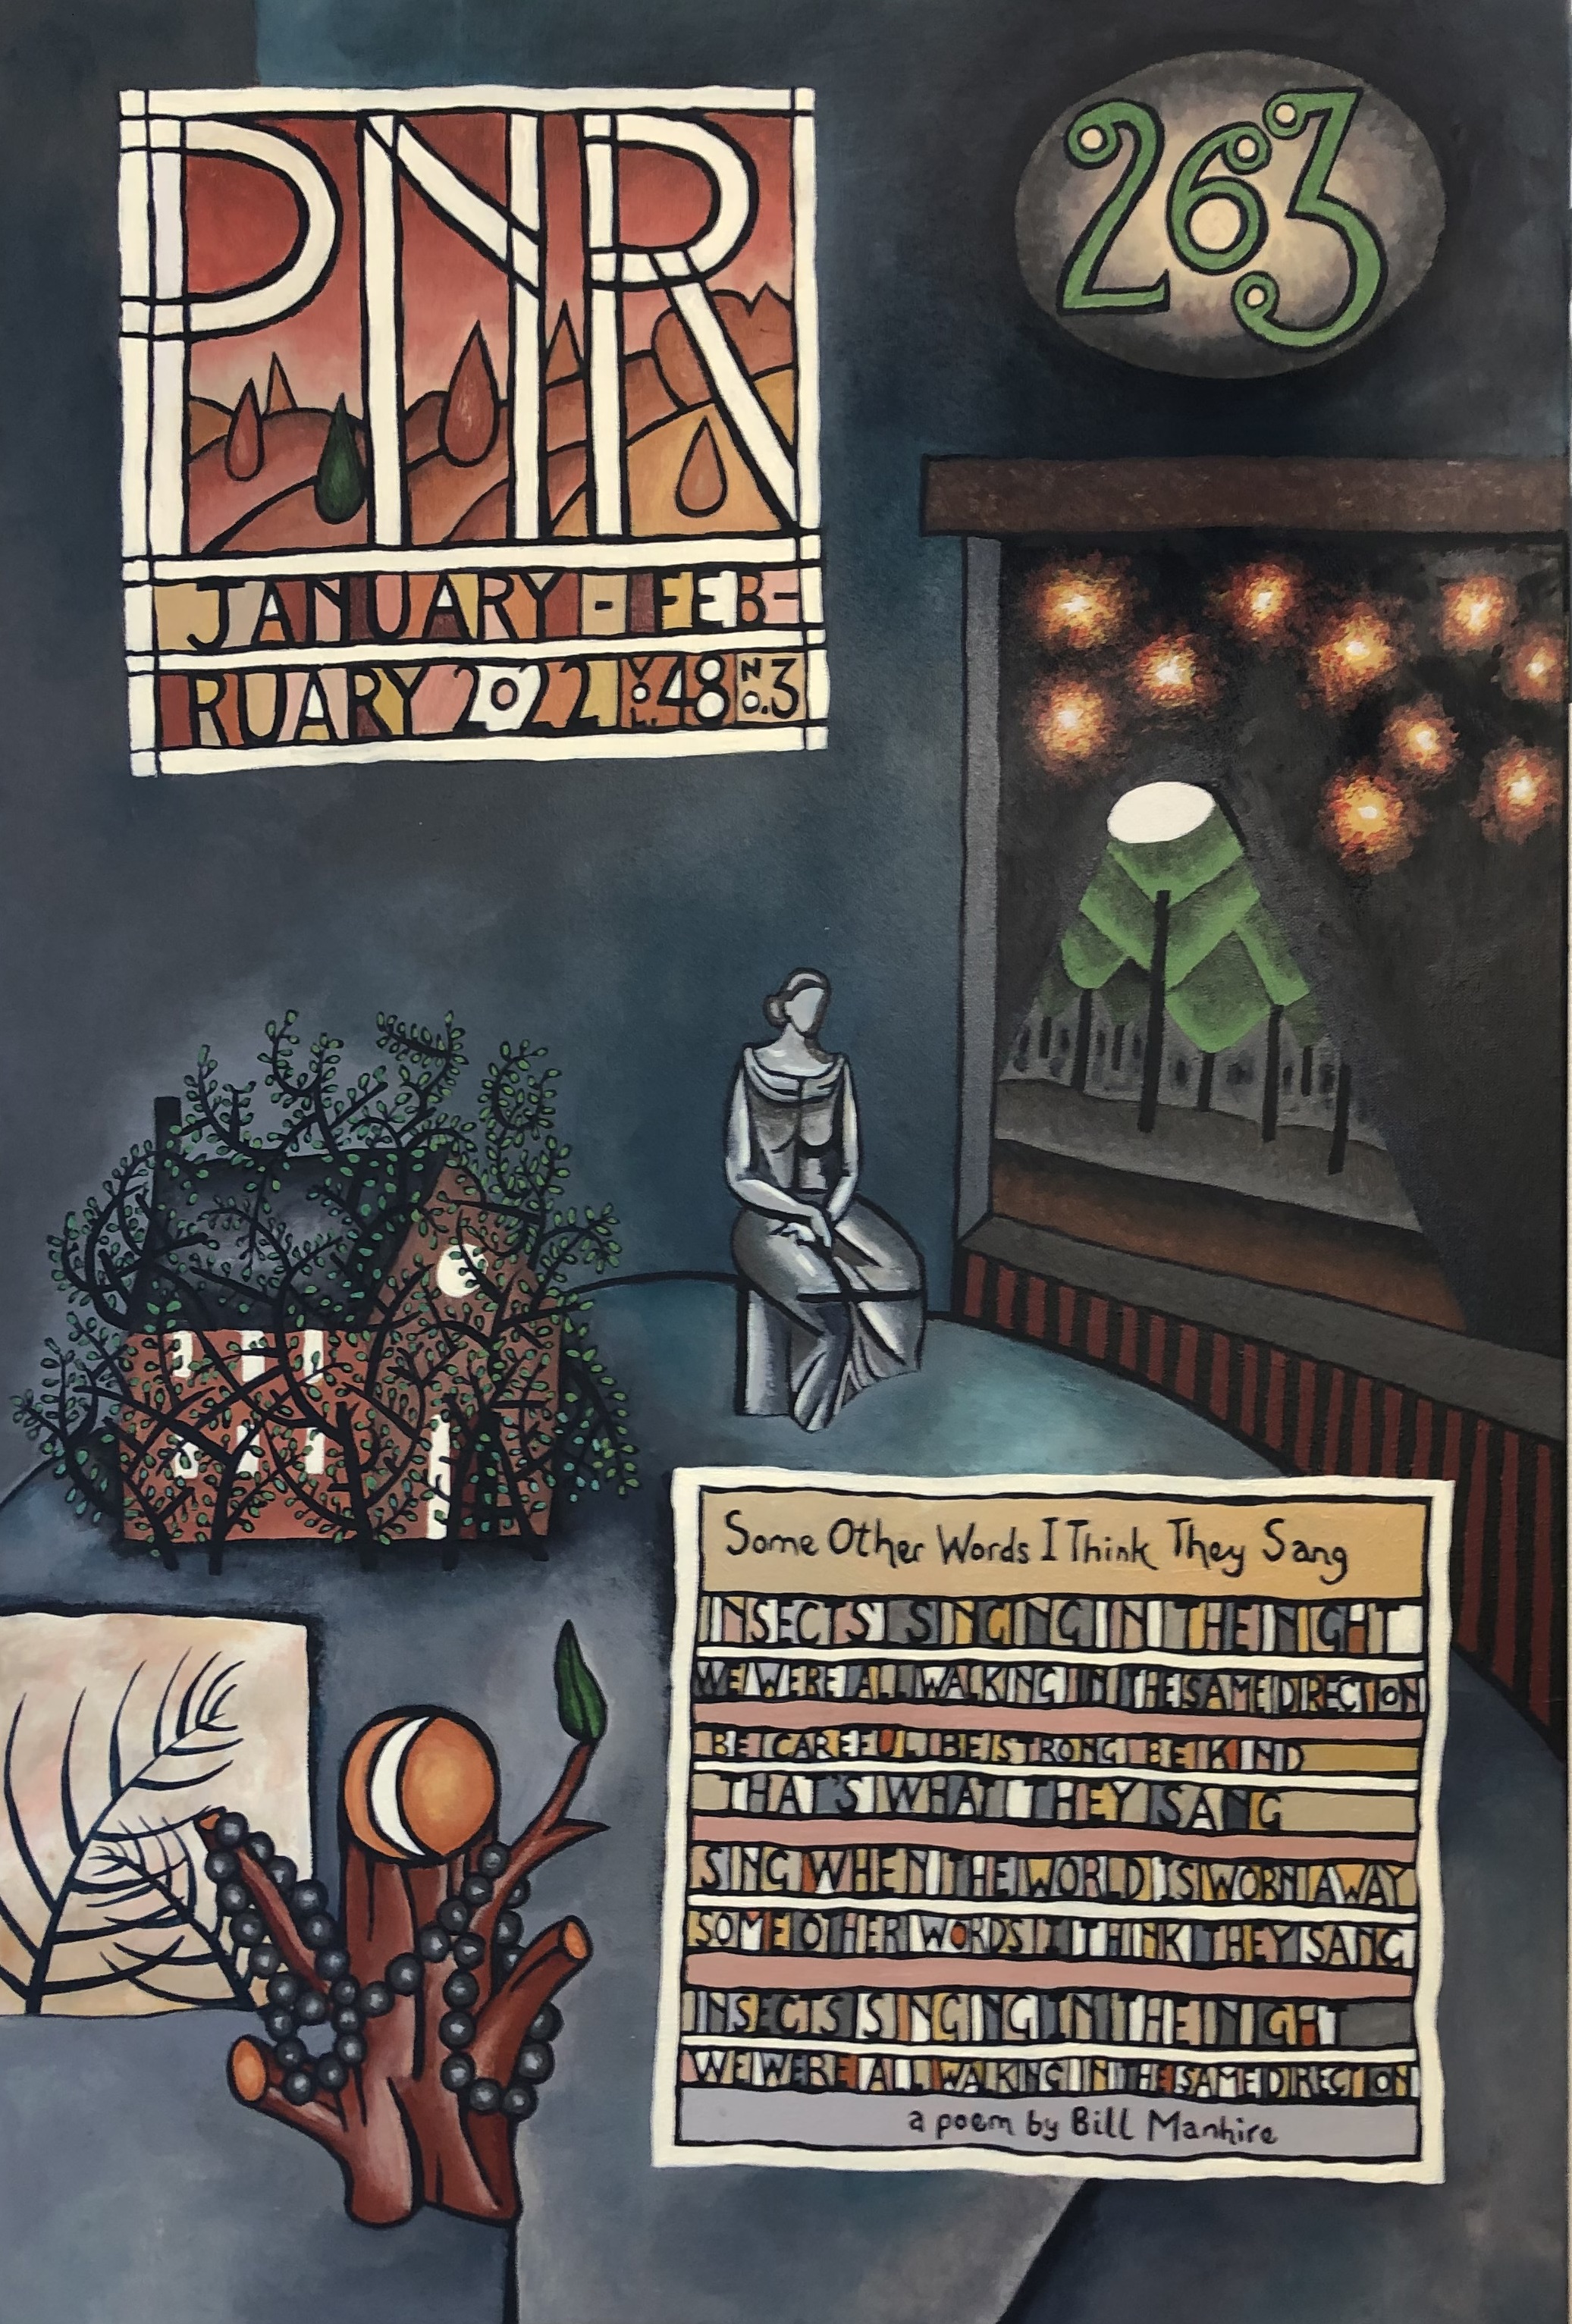 PNR
263
JANUARY - FEB-
RUARY 2022 VOL. 48 NO. 3
Some Other Words I Think They Sang
INSECTS SINGING IN THE NIGHT
WE WERE ALL WALKING IN THE SAME DIRECTION
BE CAREFUL BE STRONG BE KIND
THAT'S WHAT THEY SANG
SING WHEN THE WORLD IS WORN AWAY
SOME OTHER WORDS I THINK THEY SANG
INSECTS SINGING IN THE NIGHT
WE WERE ALL WALKING IN THE SAME DIRECTION
a poem by Bill Manhire